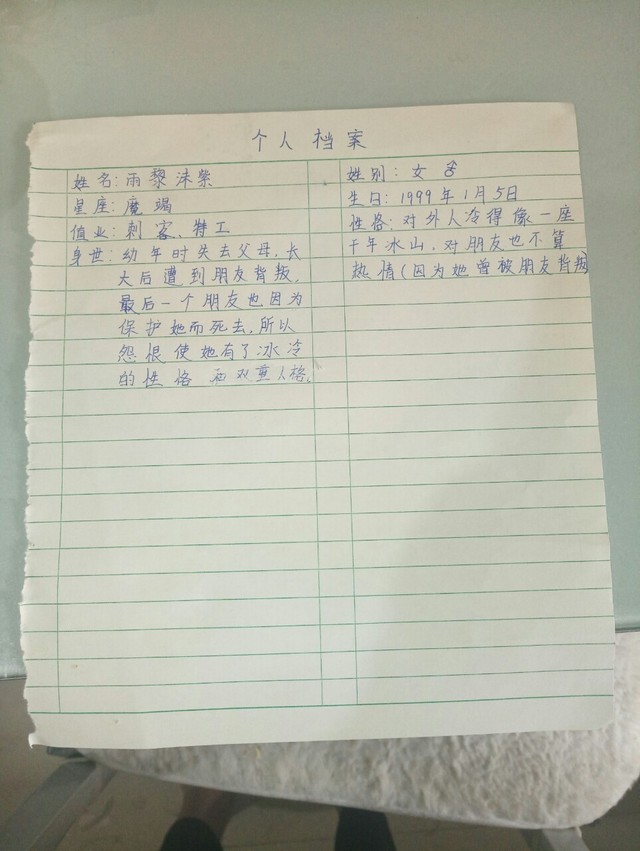 个人档案
姓名:雨黎沫紫
星座:魔竭
值业:刺客、特工
身世:幼年时失去父母,长
大后遭到朋友背叛,
最后一个朋友也因为
保护她而死去,所以
怨根使她有了冰冷
的性格和双重人格。
姓别:女 ♂
生日:1999年1月5日
性格:对外人冷得像一座
千年冰山,对朋友也不算
热情(因为她曾被朋友背叛